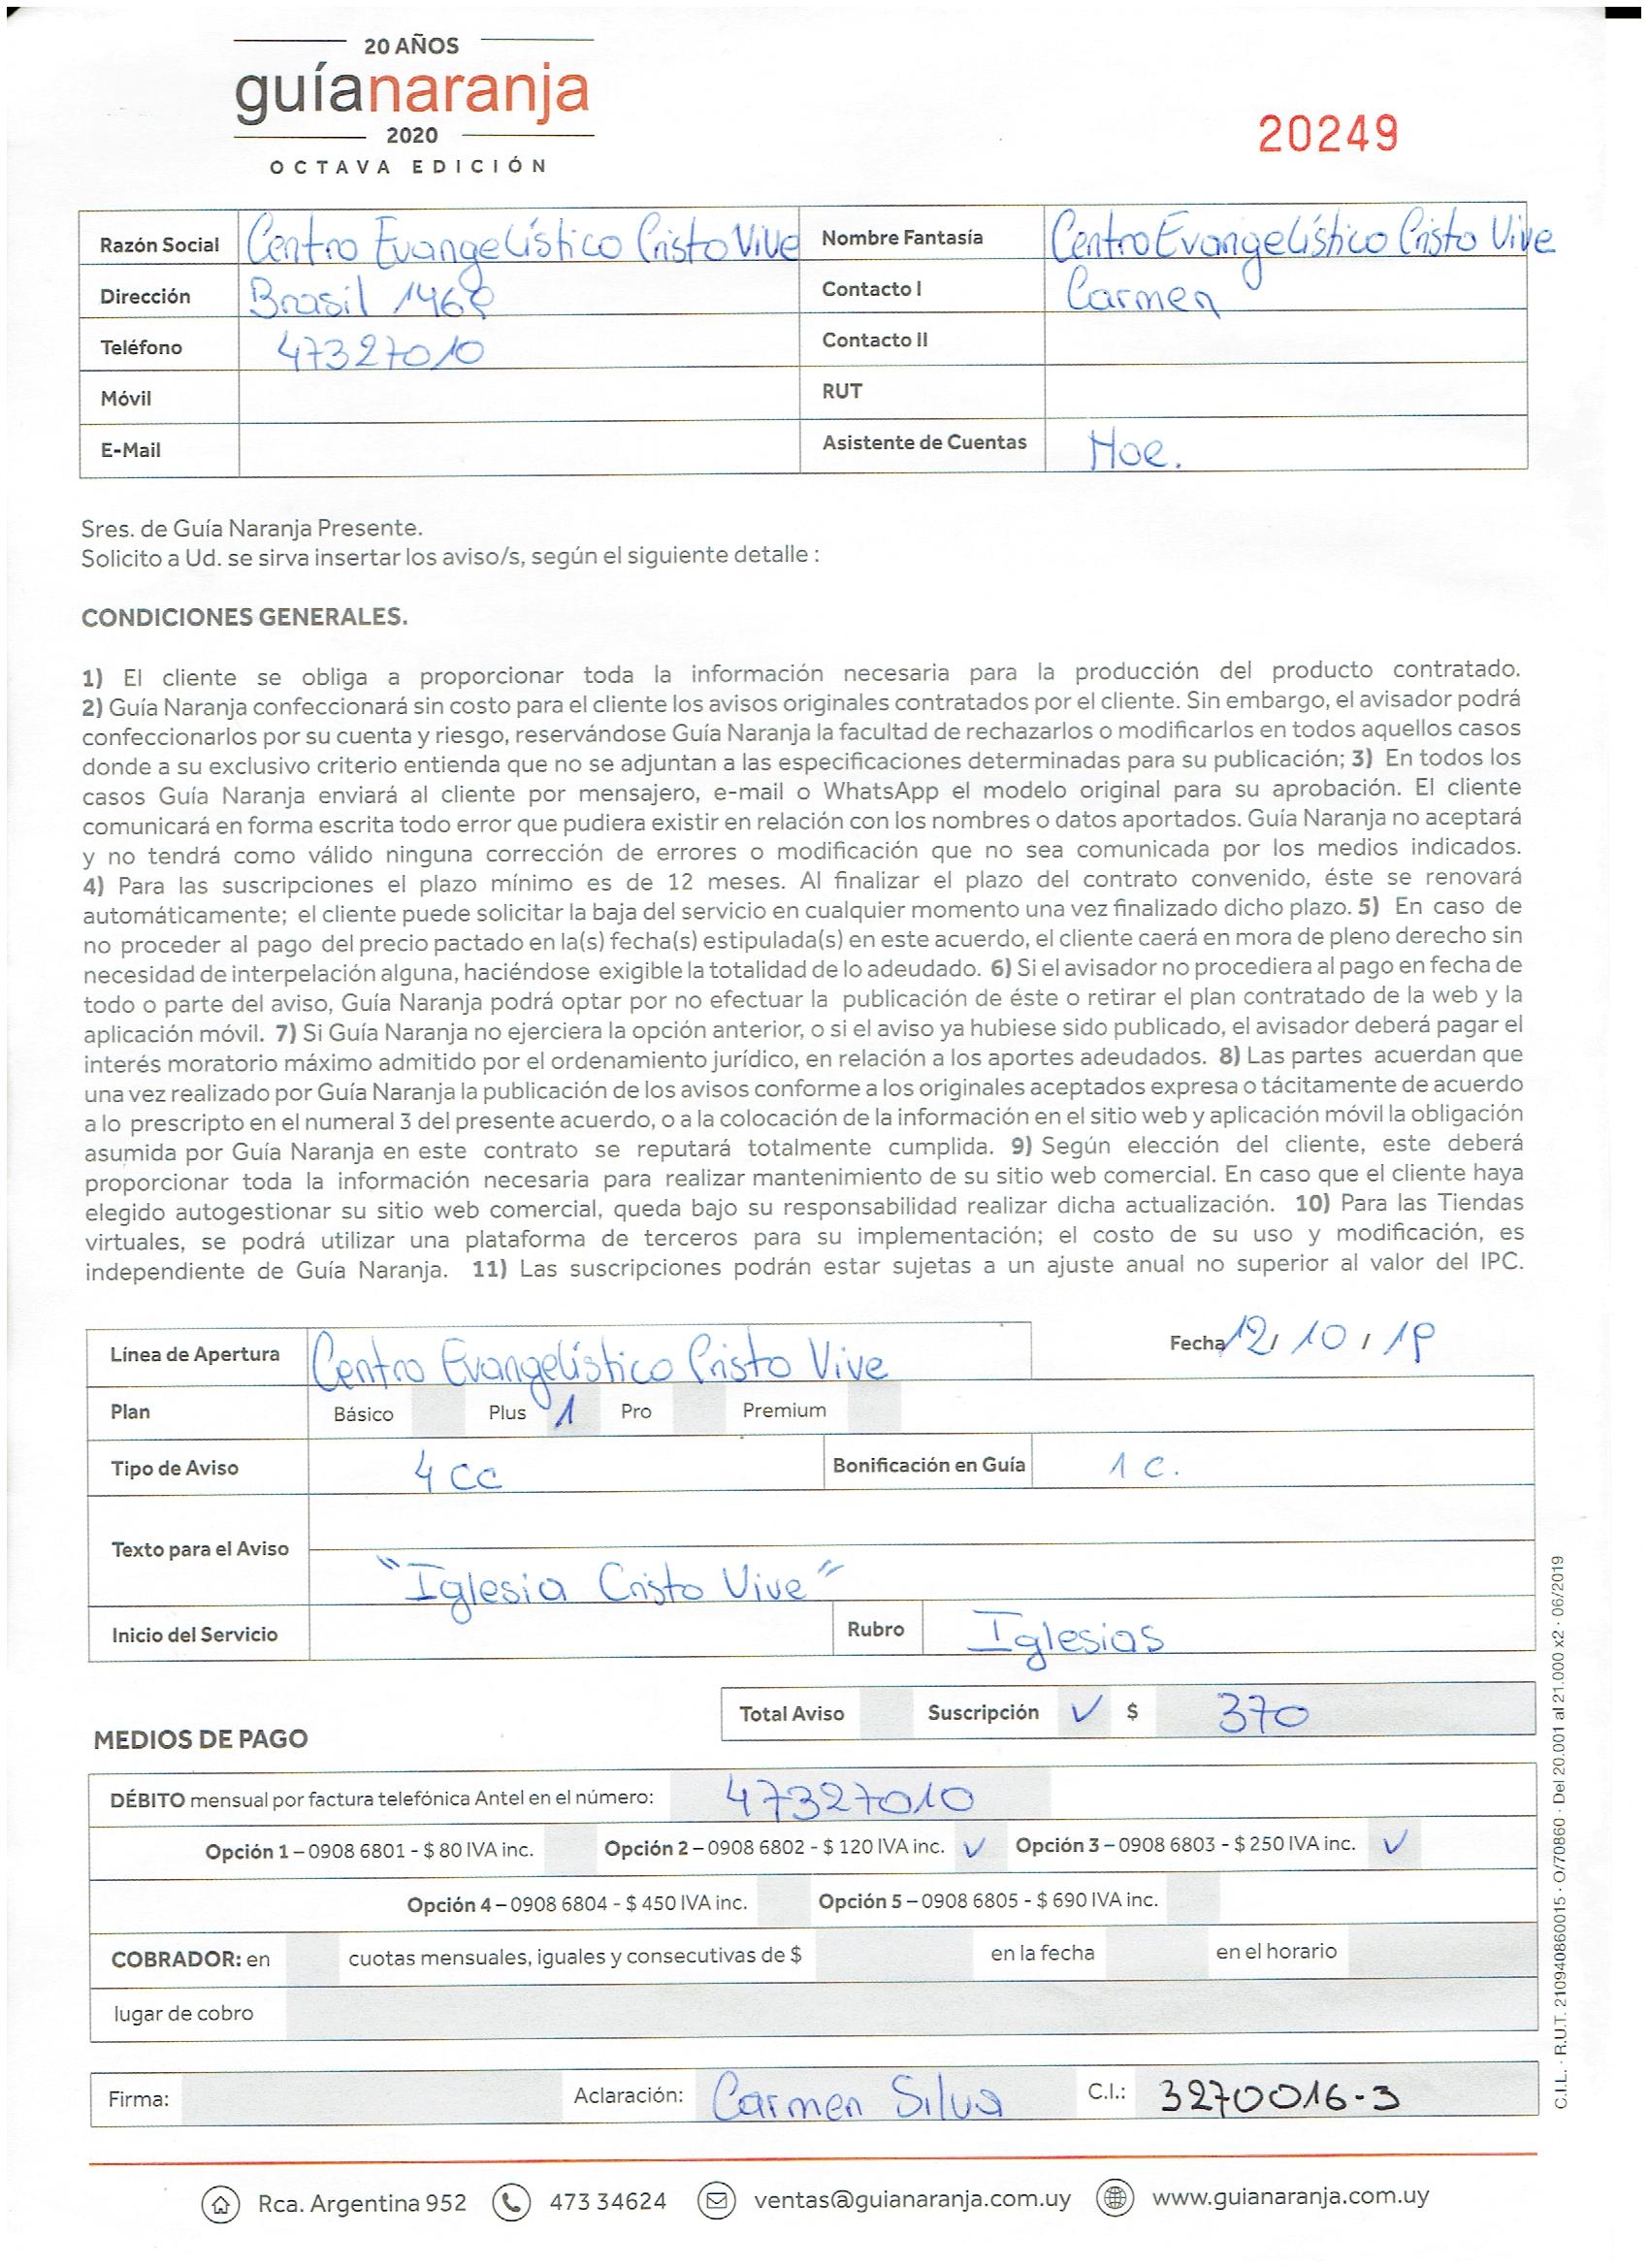 20 AÑOS
guíanaranja
2020
OCTAVA EDICIÓN
20249
Razón Social Centro Evangelístico Cristo Vive Nombre Fantasía Centro Evangelístico Cristo Vive
Dirección Brasil 1468 Contacto I Carmen
Teléfono 47327010 Contacto II
Móvil RUT
E-Mail Asistente de Cuentas Noe.
Sres. de Guía Naranja Presente.
Solicito a Ud. se sirva insertar los aviso/s, según el siguiente detalle :
CONDICIONES GENERALES.
1) El cliente se obliga a proporcionar toda la información necesaria para la producción del producto contratado.
2) Guía Naranja confeccionará sin costo para el cliente los avisos originales contratados por el cliente. Sin embargo, el avisador podrá
confeccionarlos por su cuenta y riesgo, reservándose Guía Naranja la facultad de rechazarlos o modificarlos en todos aquellos casos
donde a su exclusivo criterio entienda que no se adjuntan a las especificaciones determinadas para su publicación; 3) En todos los
casos Guía Naranja enviará al cliente por mensajero, e-mail o WhatsApp el modelo original para su aprobación. El cliente
comunicará en forma escrita todo error que pudiera existir en relación con los nombres o datos aportados. Guía Naranja no aceptará
y no tendrá como válido ninguna corrección de errores o modificación que no sea comunicada por los medios indicados.
4) Para las suscripciones el plazo mínimo es de 12 meses. Al finalizar el plazo del contrato convenido, éste se renovará
automáticamente; el cliente puede solicitar la baja del servicio en cualquier momento una vez finalizado dicho plazo. 5) En caso de
no proceder al pago del precio pactado en la(s) fecha(s) estipulada(s) en este acuerdo, el cliente caerá en mora de pleno derecho sin
necesidad de interpelación alguna, haciéndose exigible la totalidad de lo adeudado. 6) Si el avisador no procediera al pago en fecha de
todo o parte del aviso, Guía Naranja podrá optar por no efectuar la publicación de éste o retirar el plan contratado de la web y la
aplicación móvil. 7) Si Guía Naranja no ejerciera la opción anterior, o si el aviso ya hubiese sido publicado, el avisador deberá pagar el
interés moratorio máximo admitido por el ordenamiento jurídico, en relación a los aportes adeudados. 8) Las partes acuerdan que
una vez realizado por Guía Naranja la publicación de los avisos conforme a los originales aceptados expresa o tácitamente de acuerdo
a lo prescripto en el numeral 3 del presente acuerdo, o a la colocación de la información en el sitio web y aplicación móvil la obligación
asumida por Guía Naranja en este contrato se reputará totalmente cumplida. 9) Según elección del cliente, este deberá
proporcionar toda la información necesaria para realizar mantenimiento de su sitio web comercial. En caso que el cliente haya
elegido autogestionar su sitio web comercial, queda bajo su responsabilidad realizar dicha actualización. 10) Para las Tiendas
virtuales, se podrá utilizar una plataforma de terceros para su implementación; el costo de su uso y modificación, es
independiente de Guía Naranja. 11) Las suscripciones podrán estar sujetas a un ajuste anual no superior al valor del IPC.
Línea de Apertura Centro Evangelístico Cristo Vive Fecha 12 / 10 / 19
Plan Básico Plus 1 Pro Premium
Tipo de Aviso 4 cc Bonificación en Guía 1 c.
Texto para el Aviso
"Iglesia Cristo Vive"
Inicio del Servicio Rubro Iglesias
Total Aviso Suscripción ✓ $ 370
MEDIOS DE PAGO
DÉBITO mensual por factura telefónica Antel en el número: 47327010
Opción 1 – 0908 6801 - $ 80 IVA inc. Opción 2 – 0908 6802 - $ 120 IVA inc. ✓ Opción 3 – 0908 6803 - $ 250 IVA inc. ✓
Opción 4 – 0908 6804 - $ 450 IVA inc. Opción 5 – 0908 6805 - $ 690 IVA inc.
COBRADOR: en cuotas mensuales, iguales y consecutivas de $ en la fecha en el horario
lugar de cobro
Firma: Aclaración: Carmen Silva C.I.: 3270016-3
Rca. Argentina 952 473 34624 ventas@guianaranja.com.uy www.guianaranja.com.uy
C.I.L. · R.U.T. 210940860015 · O/70860 · Del 20.001 al 21.000 x2 · 06/2019